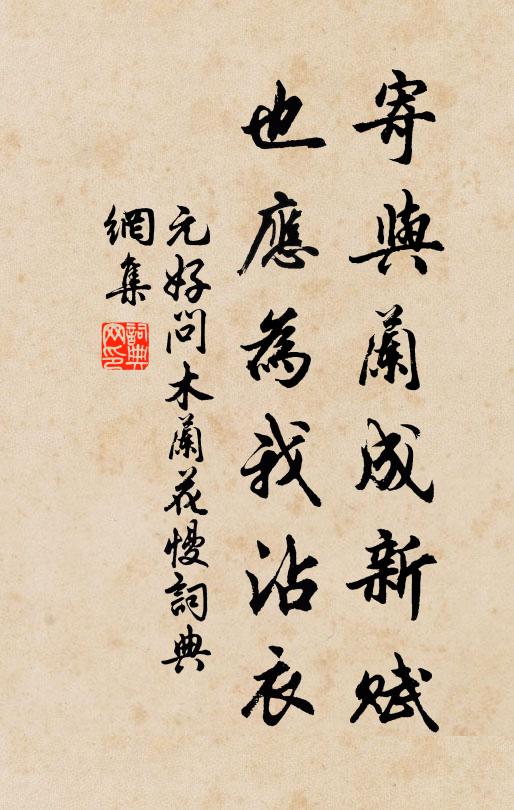 寄與蘭成新賦
也應為我沾衣
元好问木蘭花慢詞典
網集
詞典網印